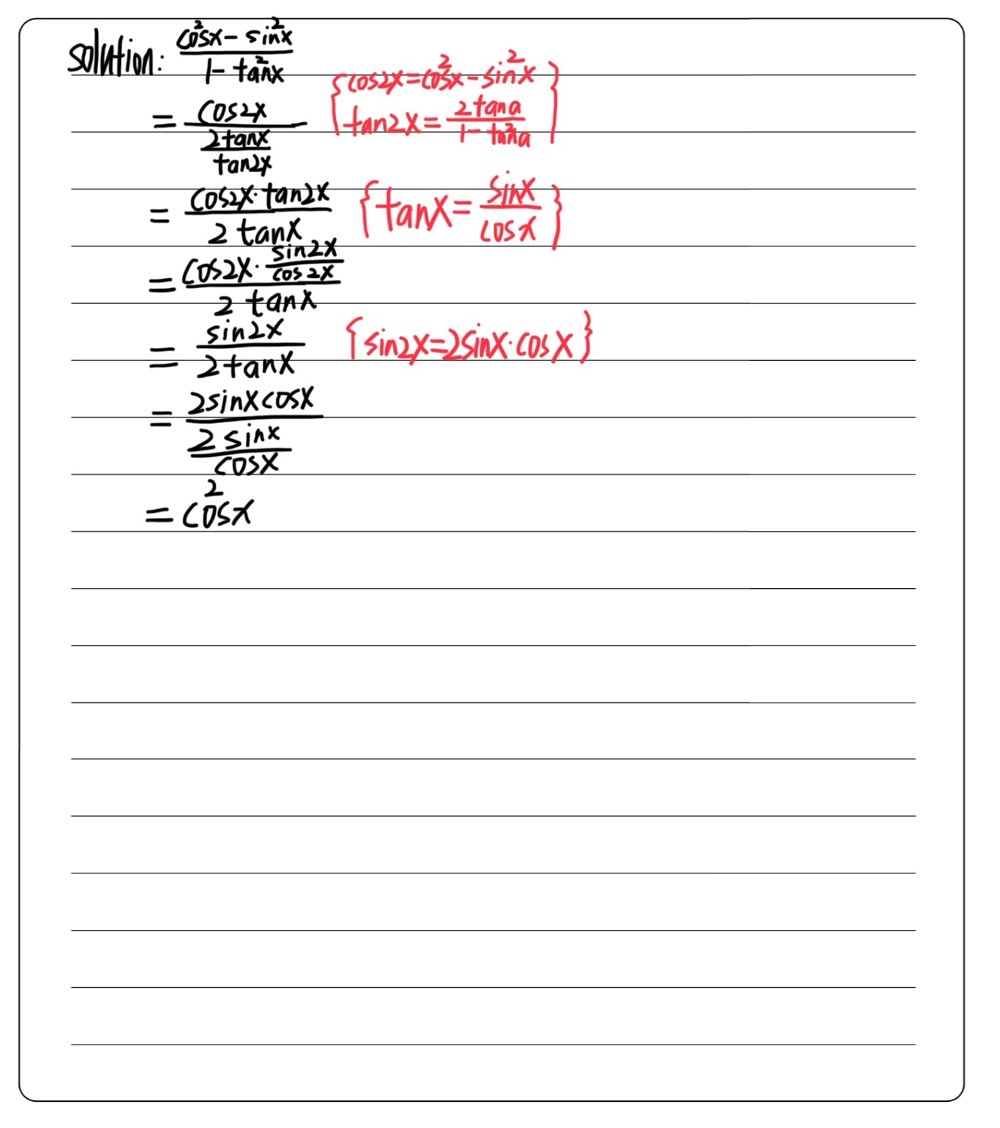 solution: (cos²x - sin²x)/(1 - tan²x)
= cos2x/(2tanx/tan2x) {cos2x = cos²x - sin²x
tan2x = 2tana/(1 - tan²a)}
= (cos2x·tan2x)/(2tanx) {tanx = sinx/cosx}
= (cos2x·sin2x/cos2x)/(2tanx)
= sin2x/(2tanx) {sin2x=2sinx·cosx}
= 2sinxcosx/(2sinx/cosx)
= cos²x